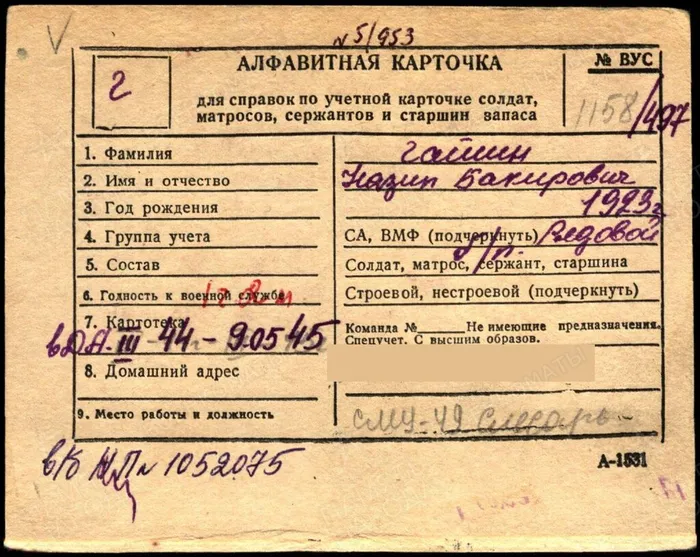 № 5/953
АЛФАВИТНАЯ КАРТОЧКА
№ ВУС
г
для справок по учетной карточке солдат,
матросов, сержантов и старшин запаса
1158/497
1. Фамилия Гайнин
2. Имя и отчество Назип Бакирович
3. Год рождения 1923г
4. Группа учета СА, ВМФ (подчеркнуть) Рядовой
5. Состав Солдат, матрос, сержант, старшина
6. Годность к военной службе Строевой, нестроевой (подчеркнуть)
7. Картотека Команда № Не имеющие предназначения.
Спецучет. С высшим образов.
в ОА. III-44-9.05 45
8. Домашний адрес
9. Место работы и должность СМУ-49 Слесарь
в/б 1052075
А-1531